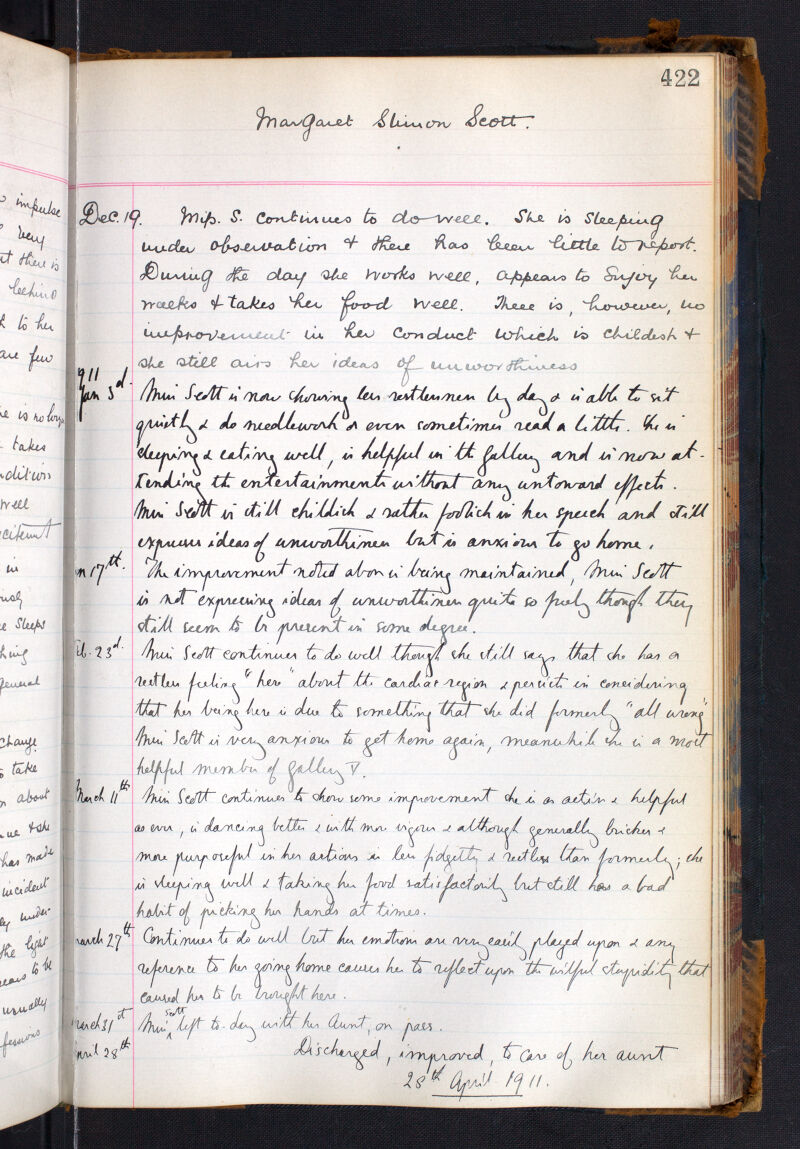 422
Margaret Slimon Scott.
impulse
very
t there is
behind
to her
are few
e is no long
takes
ndition
well
citement
in
e sleeps
general
change
take
about
ue & she
has made
incident
under-
the light
ears to be
usually
Dec. 19. Miss. S. continues to do well. She is sleeping
under observation & there has been little to report.
During the day she works well, appears to enjoy her
walks & takes her food well. There is, however, no
improvement in her conduct which is childish &
she still airs her ideas of unworthiness
1911
Jan 3d. Miss Scott is now showing less restlessness by day & is able to sit
quietly & do needlework or even sometimes read a little. She is
sleeping & eating well, is helpful in the gallery and is now at-
tending the entertainments without any untoward effects.
Miss Scott is still childish & rather foolish in her speech and still
expresses ideas of unworthiness but is anxious to go home.
n 17th. The improvement noted above is being maintained, Miss Scott
is not expressing ideas of unworthiness quite so freely though they
still seem to be present in some degree.
eb. 23d. Miss Scott continues to do well though she still says that she has a
restless feeling "here" about the cardiac region & persists in considering
that her being here is due to something that she did formerly "all wrong"
Miss Scott is very anxious to get home again, meanwhile she is a most
helpful member of gallery V.
March 11th Miss Scott continues to show some improvement she is as active & helpful
as ever, is dancing better & with more vigour & although generally brisker &
more purposeful in her actions is less fidgetty & restless than formerly; she
is sleeping well & taking her food satisfactorily but still has a bad
habit of picking her hands at times.
march 27th Continues to do well but her emotions are very easily played upon & any
reference to her going home causes her to reflect upon the wilful stupidity that
caused her to be brought here.
march 31st Miss Scott left to-day with her Aunt, on pass.
pril 28th Discharged, improved, to care of her aunt
28th April 1911.